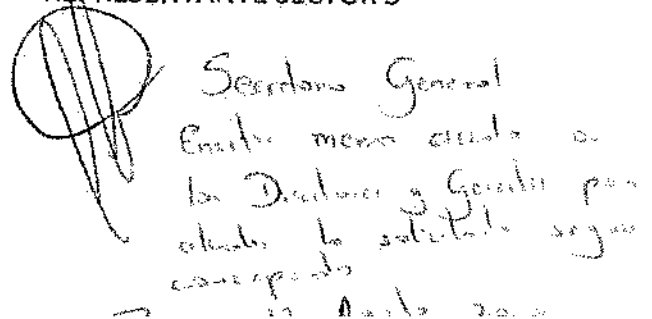 Secretario General
Emitir memo circular a
los Directores y Gerentes para
atender lo solicitado según
corresponda